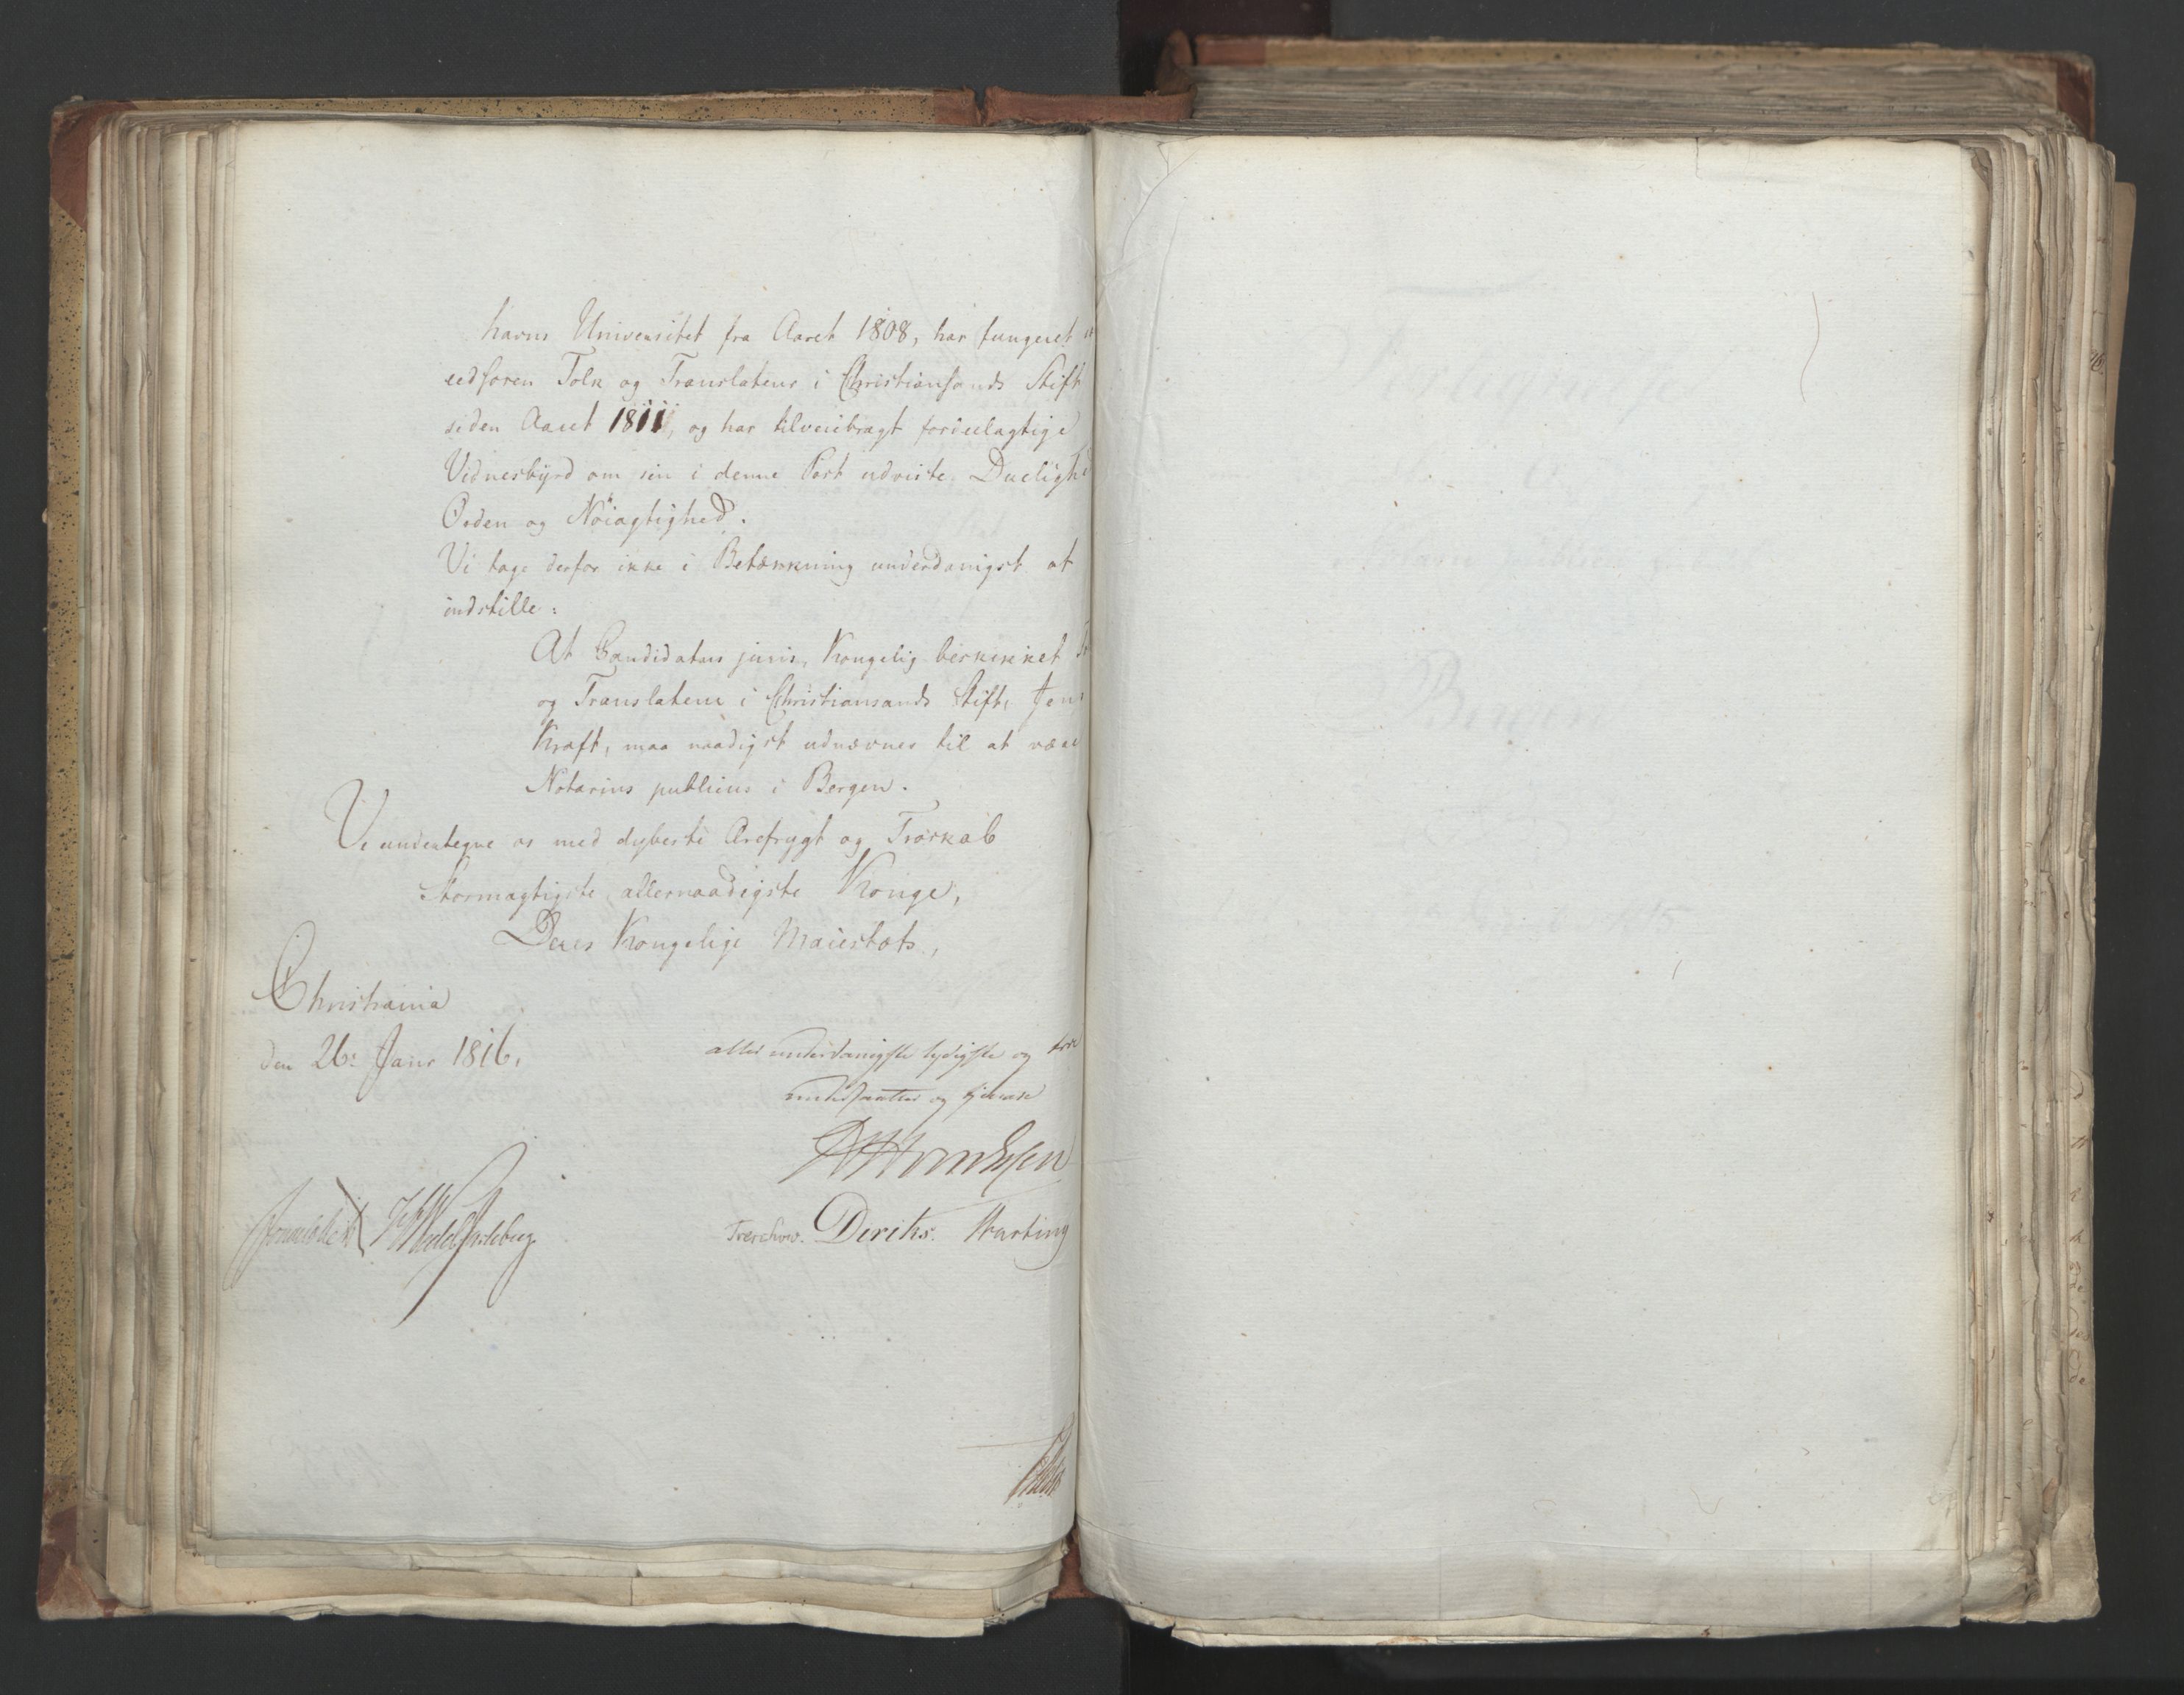 havns Universitet fra Aaret 1808, har fungeret
eedsoren Tolk og Translateur i Christiansands Stift
siden Aaret 1811, og har tilveiebragt fordeelagtige
Vidnesbyrd om sin i denne Post udviste Duelighed
Orden og Nøiagtighed.
Vi tage derfor ikke i Betænkning underdanigst at
indstille:
At Candidatus juris, Kongelig beskikket
og Translateur i Christiansands Stift, Jens
Kraft, maa naadigst udnævnes til at være
Notarius publicus i Bergen.
Vi undertegne os med dybeste Ærefrygt og Troskab
Stormægtigste, allernaadigste Konge,
Deres Kongelige Maiestæts,
Christiania
den 26: Janr 1816.
allerunderdanigste lydigste og troe
undersaatter og tjenere
Sommerhielm HWedel Jarlsberg
Treschow. Diriks. Hartting
Bergen